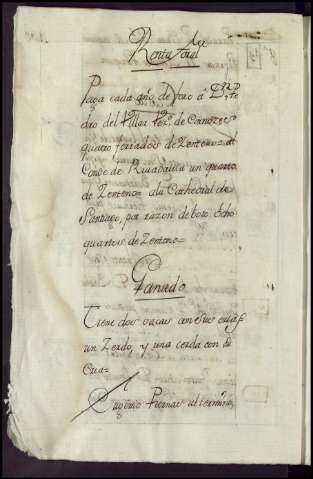 Renta foral
Paga cada año de foro a Dn Pe
dro del Villar vezº de Cornozes
quatro ferrados de Zenteno= al
Conde de Rivadavia un quarto
de Zenteno= a la Cathedral de
Santiago, por razon de boto Ocho
quartos de Zenteno=
Ganado
Tiene dos vacas con sus crias
un Zerdo, y una cerda con di
Cria=